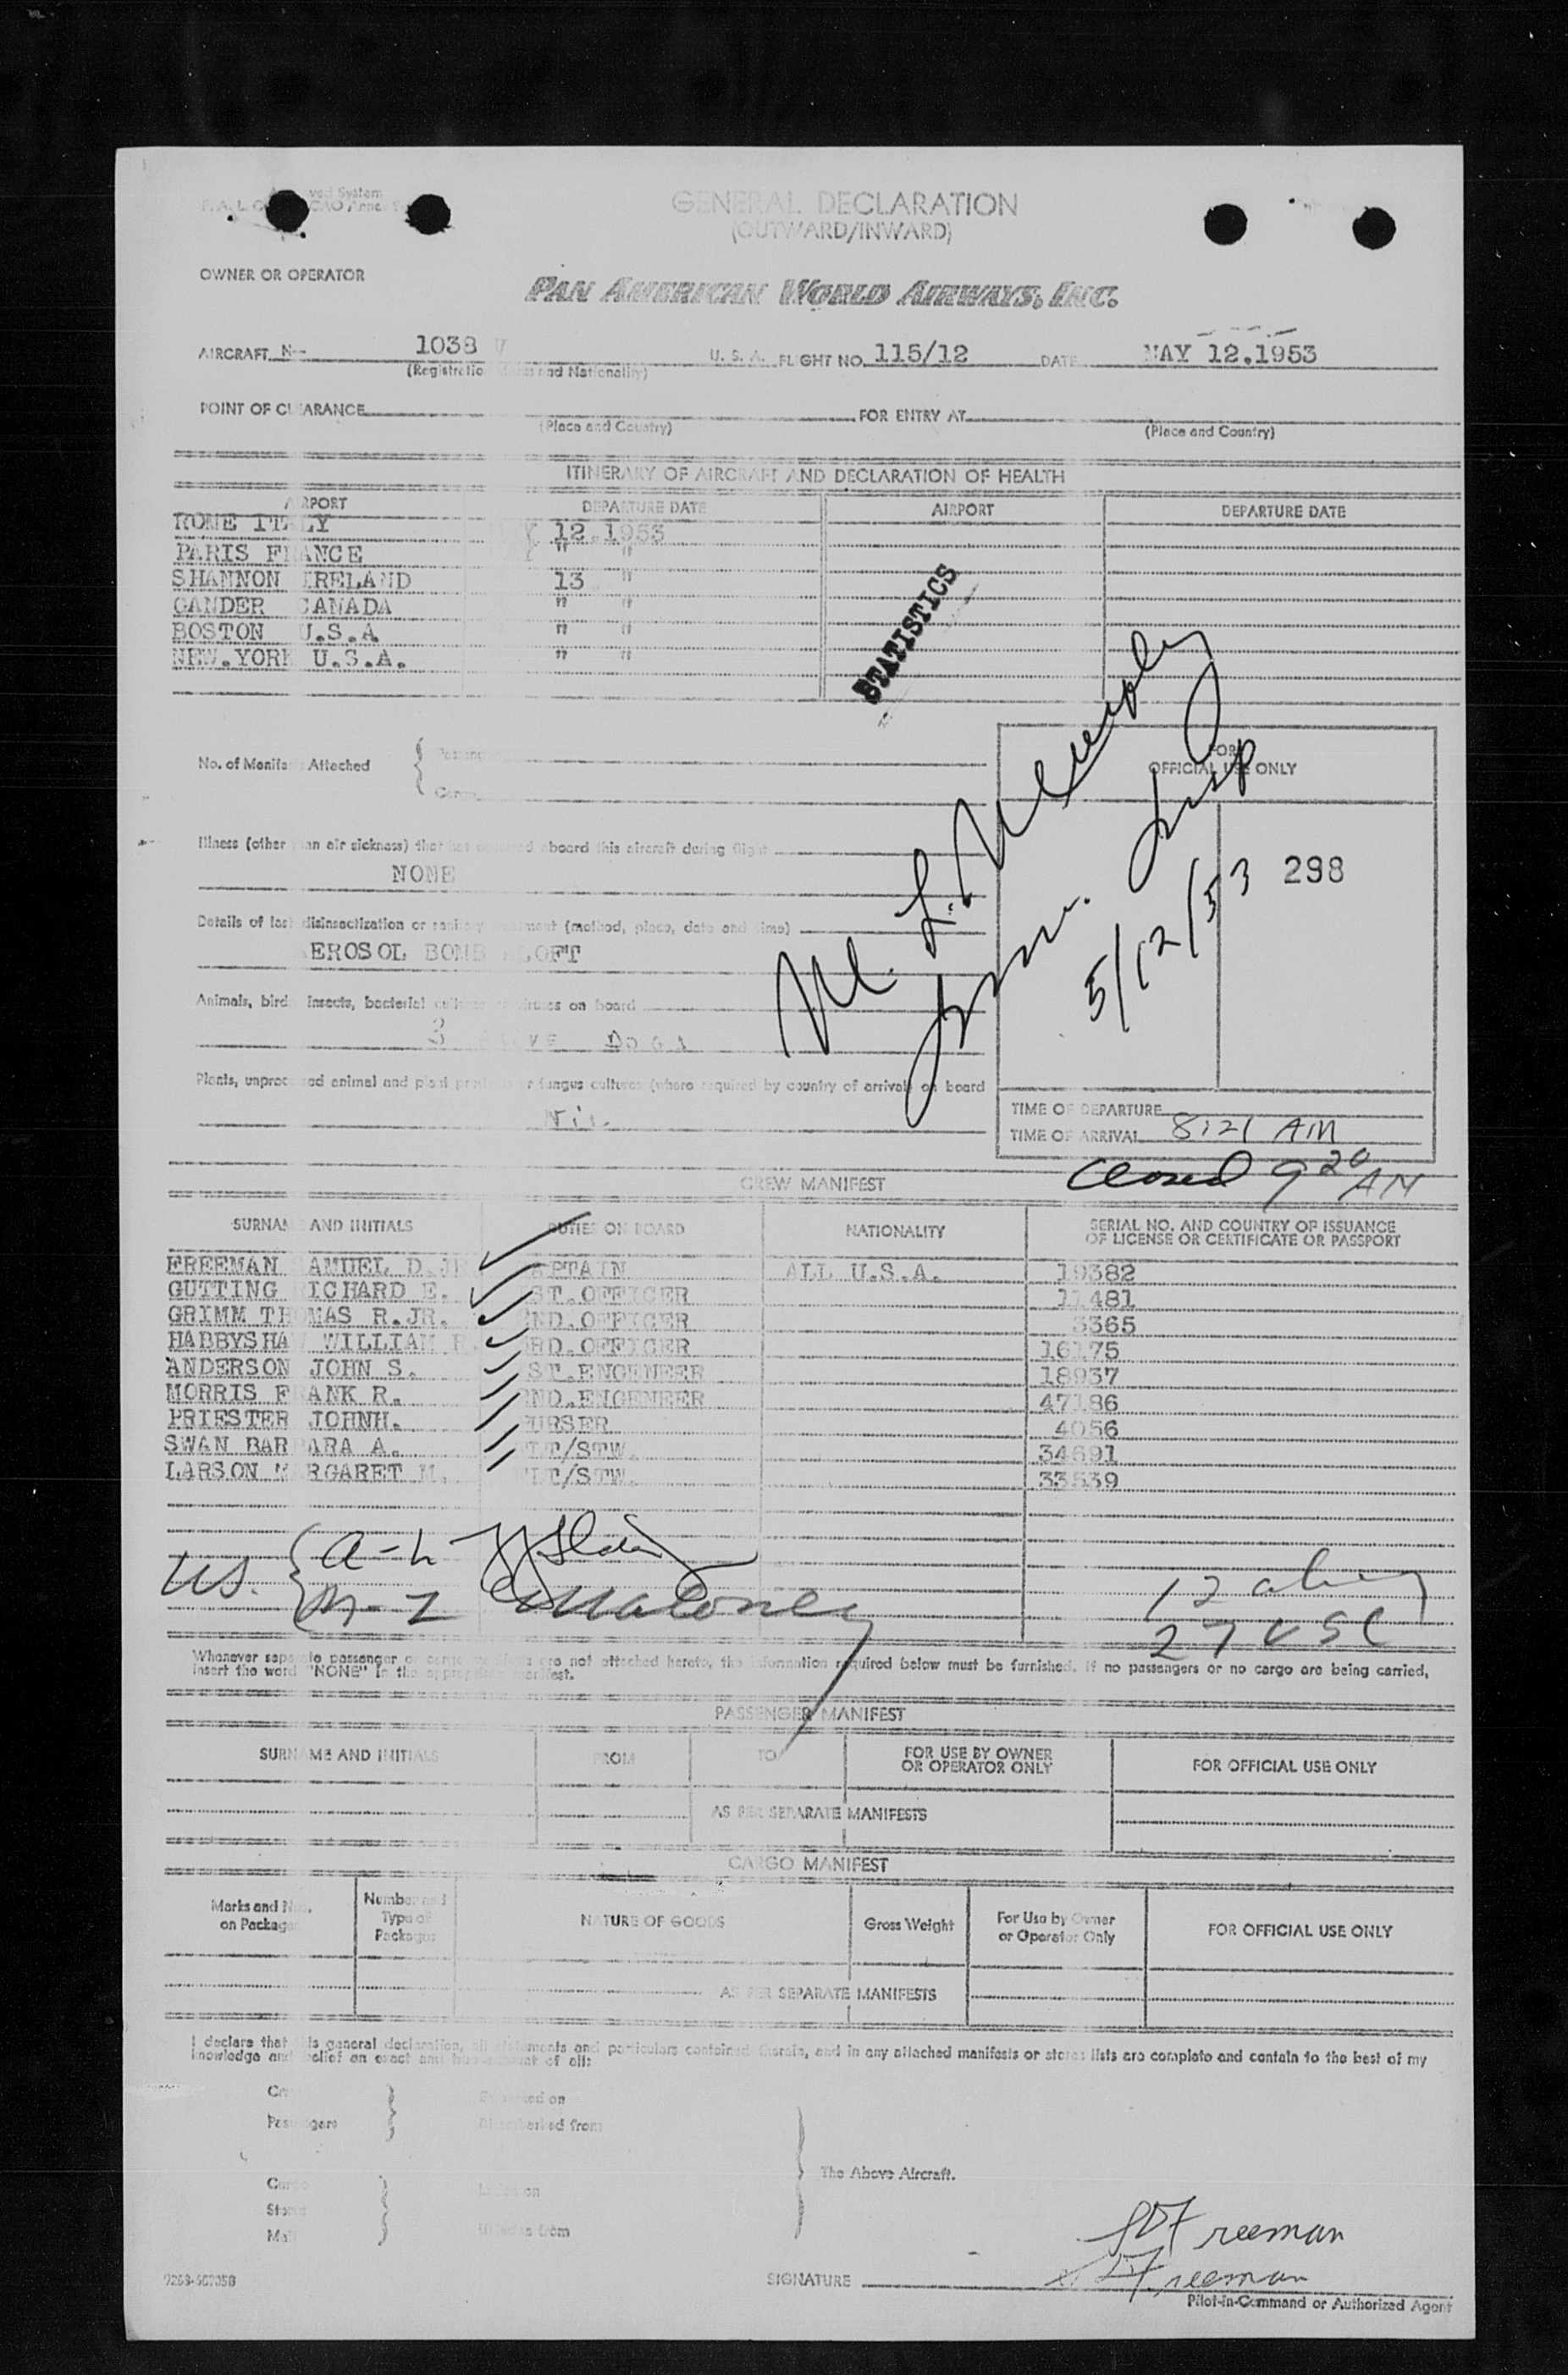 GENERAL DECLARATION
(OUTWARD/INWARD)
OWNER OR OPERATOR
PAN AMERICAN WORLD AIRWAYS, INC.
AIRCRAFT N-- 1038 V U. S. A. FLIGHT NO. 115/12 DATE MAY 12.1953
(Registration and Nationality)
POINT OF CLEARANCE FOR ENTRY AT
(Place and Country) (Place and Country)
ITINERARY OF AIRCRAFT AND DECLARATION OF HEALTH
AIRPORT DEPARTURE DATE AIRPORT DEPARTURE DATE
ROME ITALY 12.1953
PARIS FRANCE " "
SHANNON IRELAND 13 "
GANDER CANADA " "
BOSTON U.S.A " "
NEW.YORK U.S.A. " "
STATISTICS
M. L. Murphy
Imm. Insp
5/12/53
No. of Manifests Attached
FOR
OFFICIAL USE ONLY
298
Illness (other than air sickness) that has occurred aboard this aircraft during flight
NONE
Details of last disinsectization or sanitary treatment (method, place, date and time)
AEROSOL BOMB ALOFT
Animals, birds, insects, bacterial cultures or viruses on board
3 LIVE DOGS
Plants, unprocessed animal and plant products or fungus cultures (where required by country of arrival) on board
Nil
TIME OF DEPARTURE
TIME OF ARRIVAL 8:21 AM
Closed 9 20 AM
CREW MANIFEST
SURNAME AND INITIALS DUTIES ON BOARD NATIONALITY SERIAL NO. AND COUNTRY OF ISSUANCE
OF LICENSE OR CERTIFICATE OR PASSPORT
FREEMAN SAMUEL D.JR CAPTAIN ALL U.S.A. 19382
GUTTING RICHARD E. 1ST.OFFICER 11481
GRIMM THOMAS R.JR. 2ND.OFFICER 3365
HABBYSHAW WILLIAM 3RD.OFFICER 16175
ANDERSON JOHN S. 1ST.ENGENEER 18937
MORRIS FRANK R. 2ND.ENGENEER 47186
PRIESTER JOHNH. PURSER 4056
SWAN BARBARA A. FLT/STW. 34691
LARSON MARGARET M. FLT/STW. 33539
US. { A-L
M-Z Maloney
12 alien
27 USC
Whenever separate passenger or cargo manifests are not attached hereto, the information required below must be furnished. If no passengers or no cargo are being carried,
insert the word "NONE" in the appropriate manifest.
PASSENGER MANIFEST
SURNAME AND INITIALS FROM TO FOR USE BY OWNER
OR OPERATOR ONLY FOR OFFICIAL USE ONLY
AS PER SEPARATE MANIFESTS
CARGO MANIFEST
Marks and Nos.
on Packages Number and
Type of
Packages NATURE OF GOODS Gross Weight For Use by Owner
or Operator Only FOR OFFICIAL USE ONLY
AS PER SEPARATE MANIFESTS
I declare that this general declaration, all statements and particulars contained therein, and in any attached manifests or stores lists are complete and contain to the best of my
knowledge and belief an exact and true account of all:
Crew
Passengers } Embarked on
Disembarked from
Cargo
Stores
Mail } Laden on
Unladen from
The Above Aircraft.
SDFreeman
SDFreeman
SIGNATURE
Pilot-in-Command or Authorized Agent